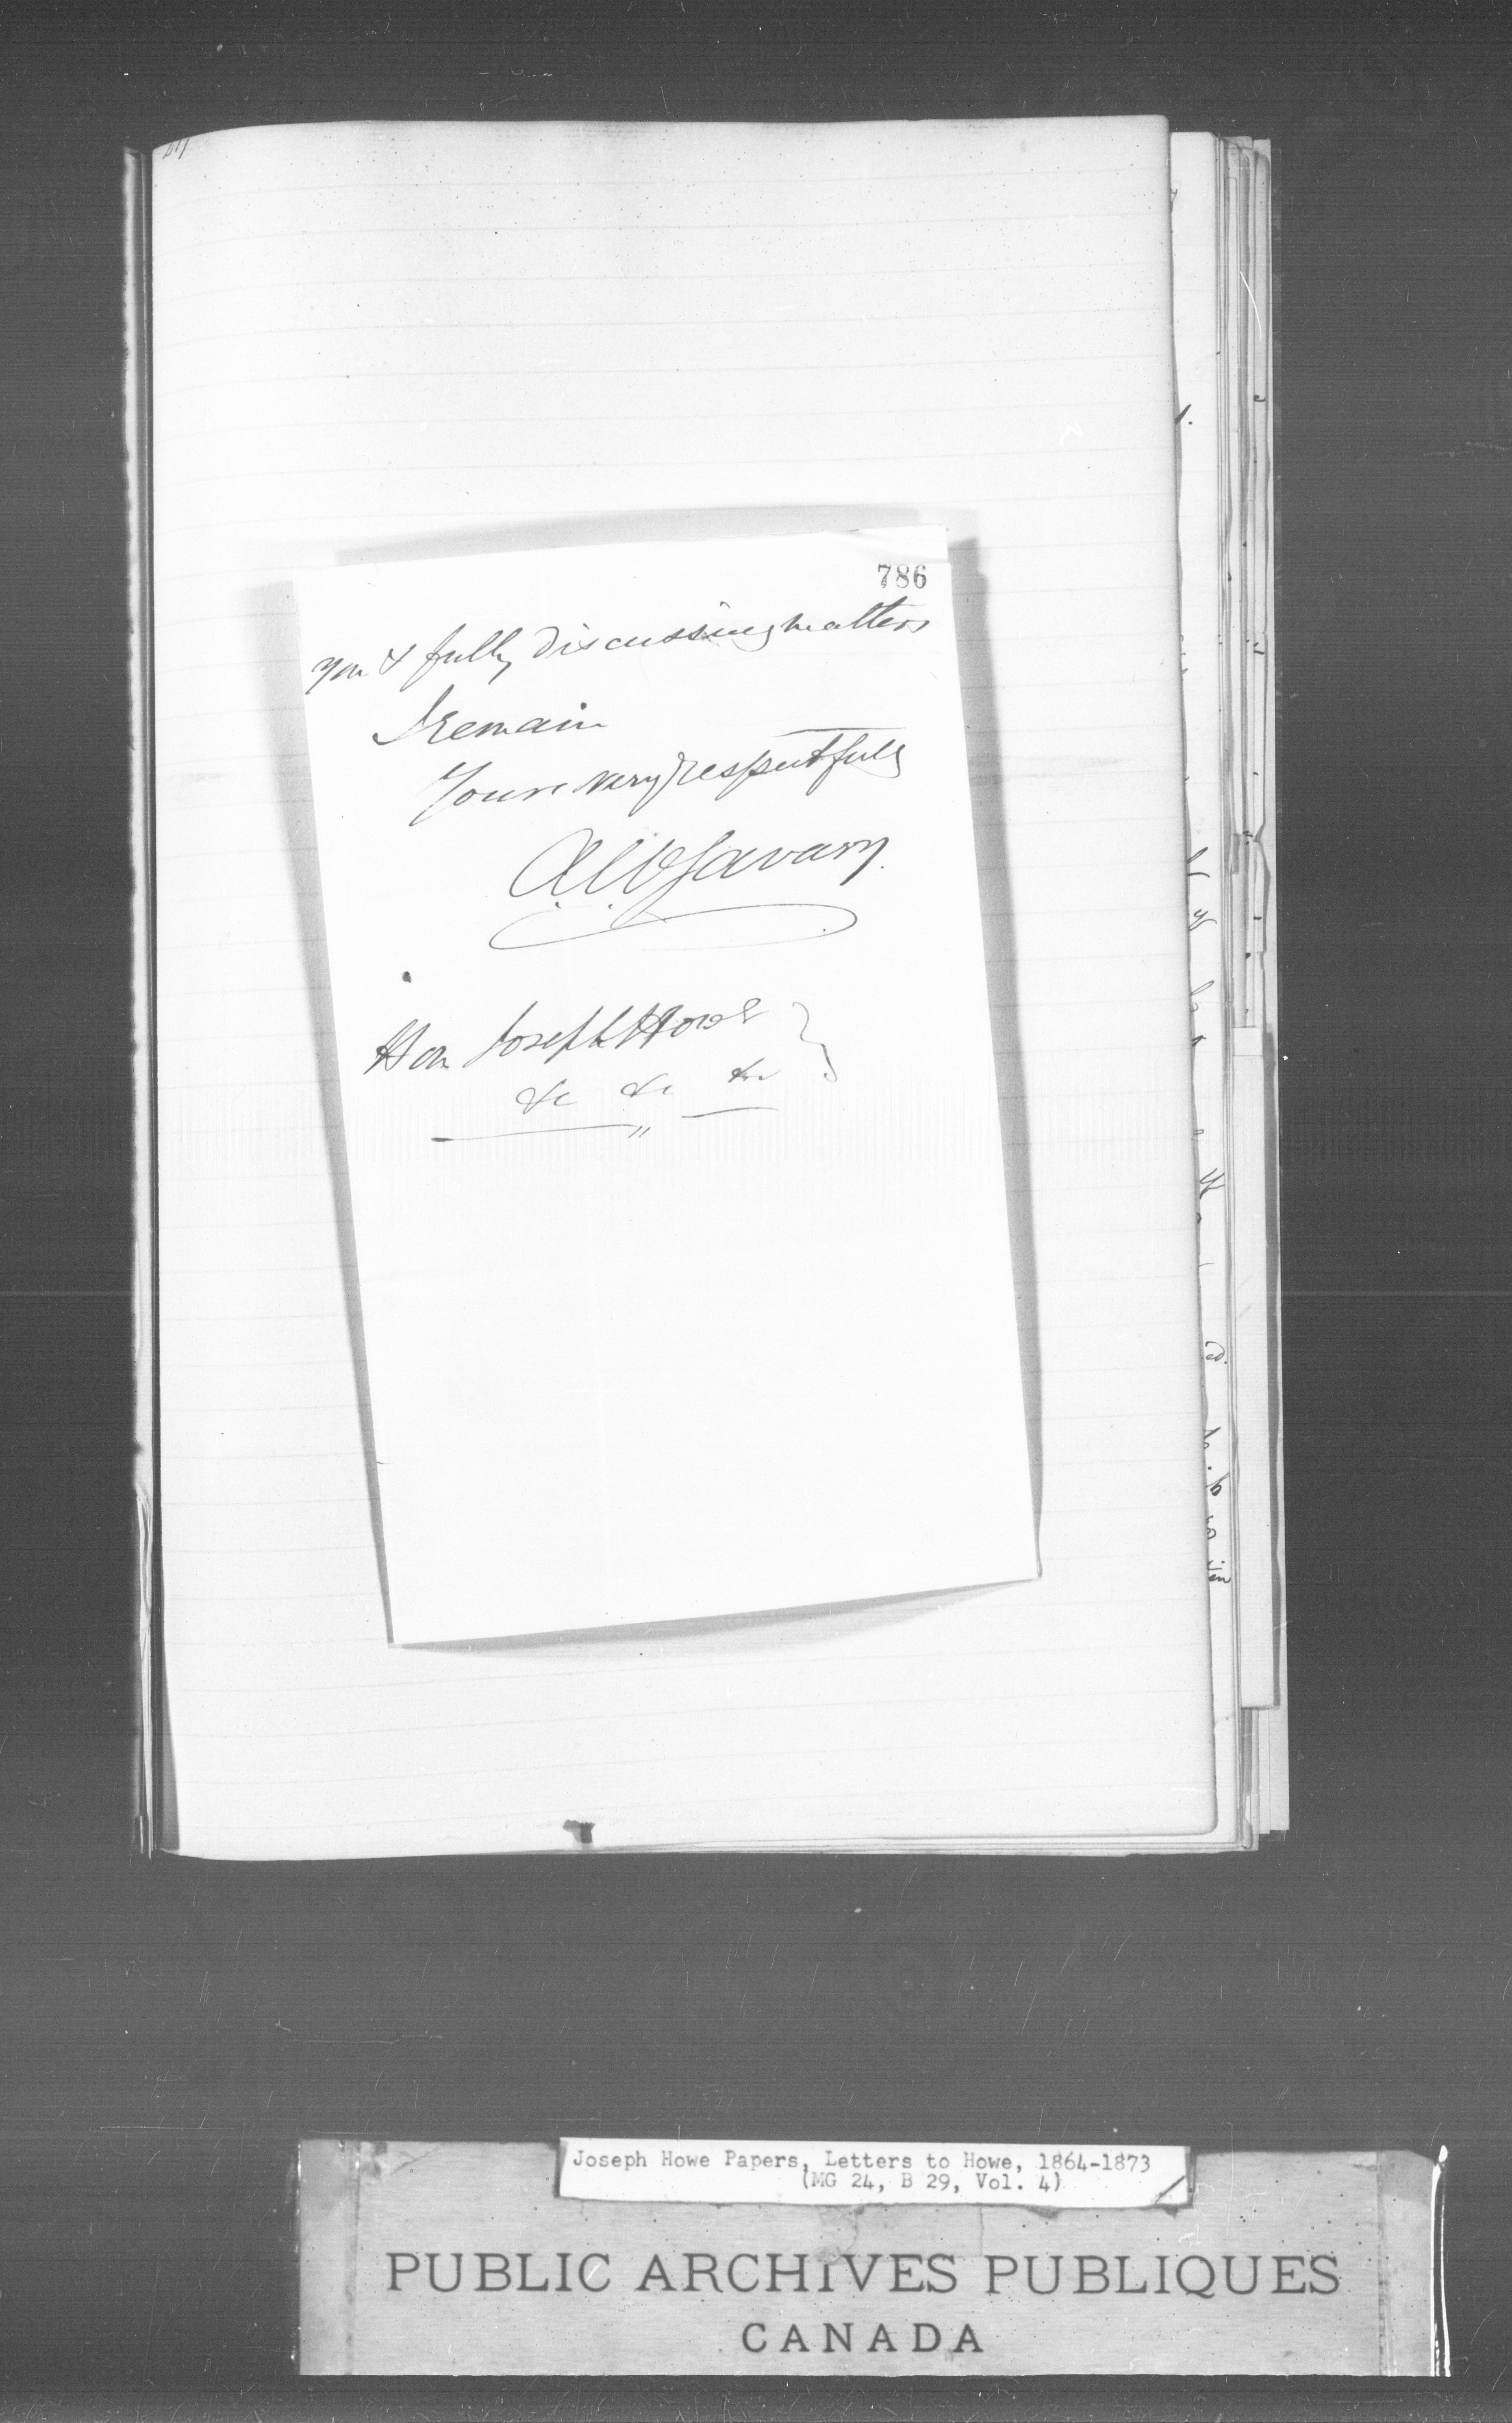 786
you & fully discussing matters
I remain
Yours very respectfully
A. W. Savary.
Hon Joseph Howe
&c &c &c
Joseph Howe Papers, Letters to Howe, 1864-1873
(MG 24, B 29, Vol. 4)
PUBLIC ARCHIVES PUBLIQUES
CANADA